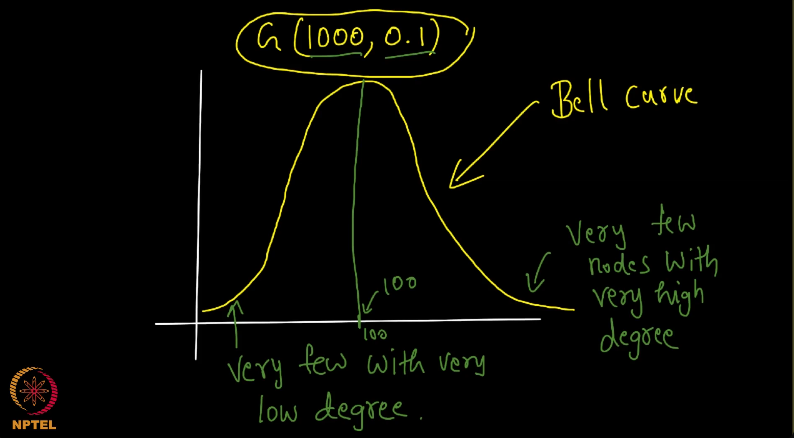 G (1000, 0.1)
Bell curve
Very few
nodes with
very high
degree
100
100
Very few with very
low degree.
NPTEL